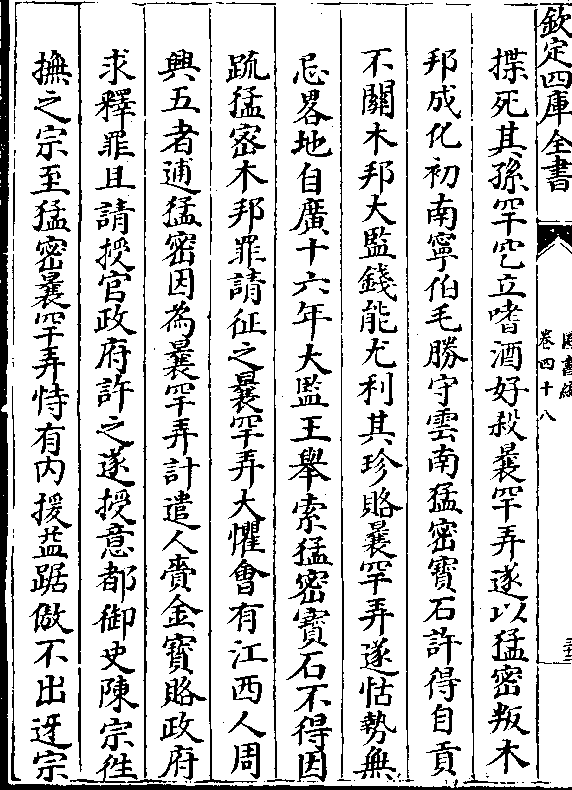 欽定四庫全書
卷四十八
揲死其孫罕穵立嗜酒好殺曩罕弄遂以猛密叛木
邦成化初南寧伯毛勝守雲南猛密寶石許得自貢
不關木邦大監錢能尤利其珍賂曩罕弄遂怙勢無
忌畧地自廣十六年大監王舉索猛密寶石不得因
疏猛密木邦罪請征之曩罕弄大懼會有江西人周
興五者逋猛密因為曩罕弄計遣人賫金寶賂政府
求釋罪且請授官政府許之遂授意都御史陳宗徃
撫之宗至猛密曩罕弄恃有内援益踞傲不出迓宗